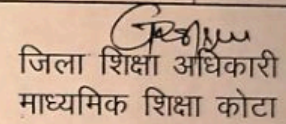 जिला शिक्षा अधिकारी
माध्यमिक शिक्षा कोटा